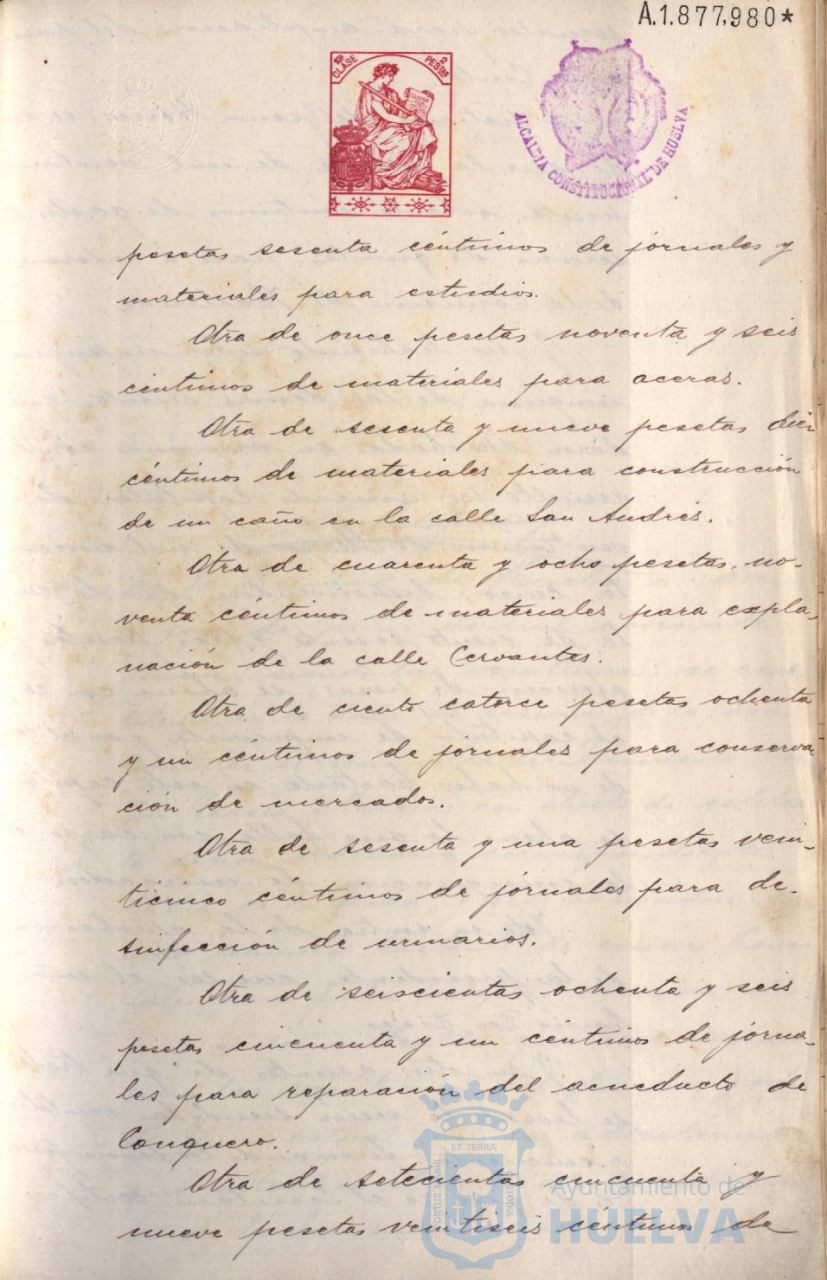 A.1.877.980*
10ª CLASE 2 PESTAS
ALCALDIA CONSTITUCIONAL DE HUELVA
pesetas sesenta céntimos de jornales y
materiales para estudios.
Otra de once pesetas noventa y seis
céntimos de materiales para aceras.
Otra de sesenta y nueve pesetas diez
céntimos de materiales para construcción
de un caño en la calle San Andrés.
Otra de cuarenta y ocho pesetas no-
venta céntimos de materiales para expla-
nación de la calle Cervantes.
Otra de ciento catorce pesetas ochenta
y un céntimos de jornales para conserva-
ción de mercados.
Otra de sesenta y una pesetas vein-
ticinco céntimos de jornales para de-
sinfección de urinarios.
Otra de seiscientas ochenta y seis
pesetas cincuenta y un céntimos de jorna-
les para reparación del acueducto de
Conquero.
Otra de setecientas cincuenta y
nueve pesetas veintiseis céntimos de
ET TERRA
PORTUS MARIS
CUSTODIA
Ayuntamiento de
HUELVA